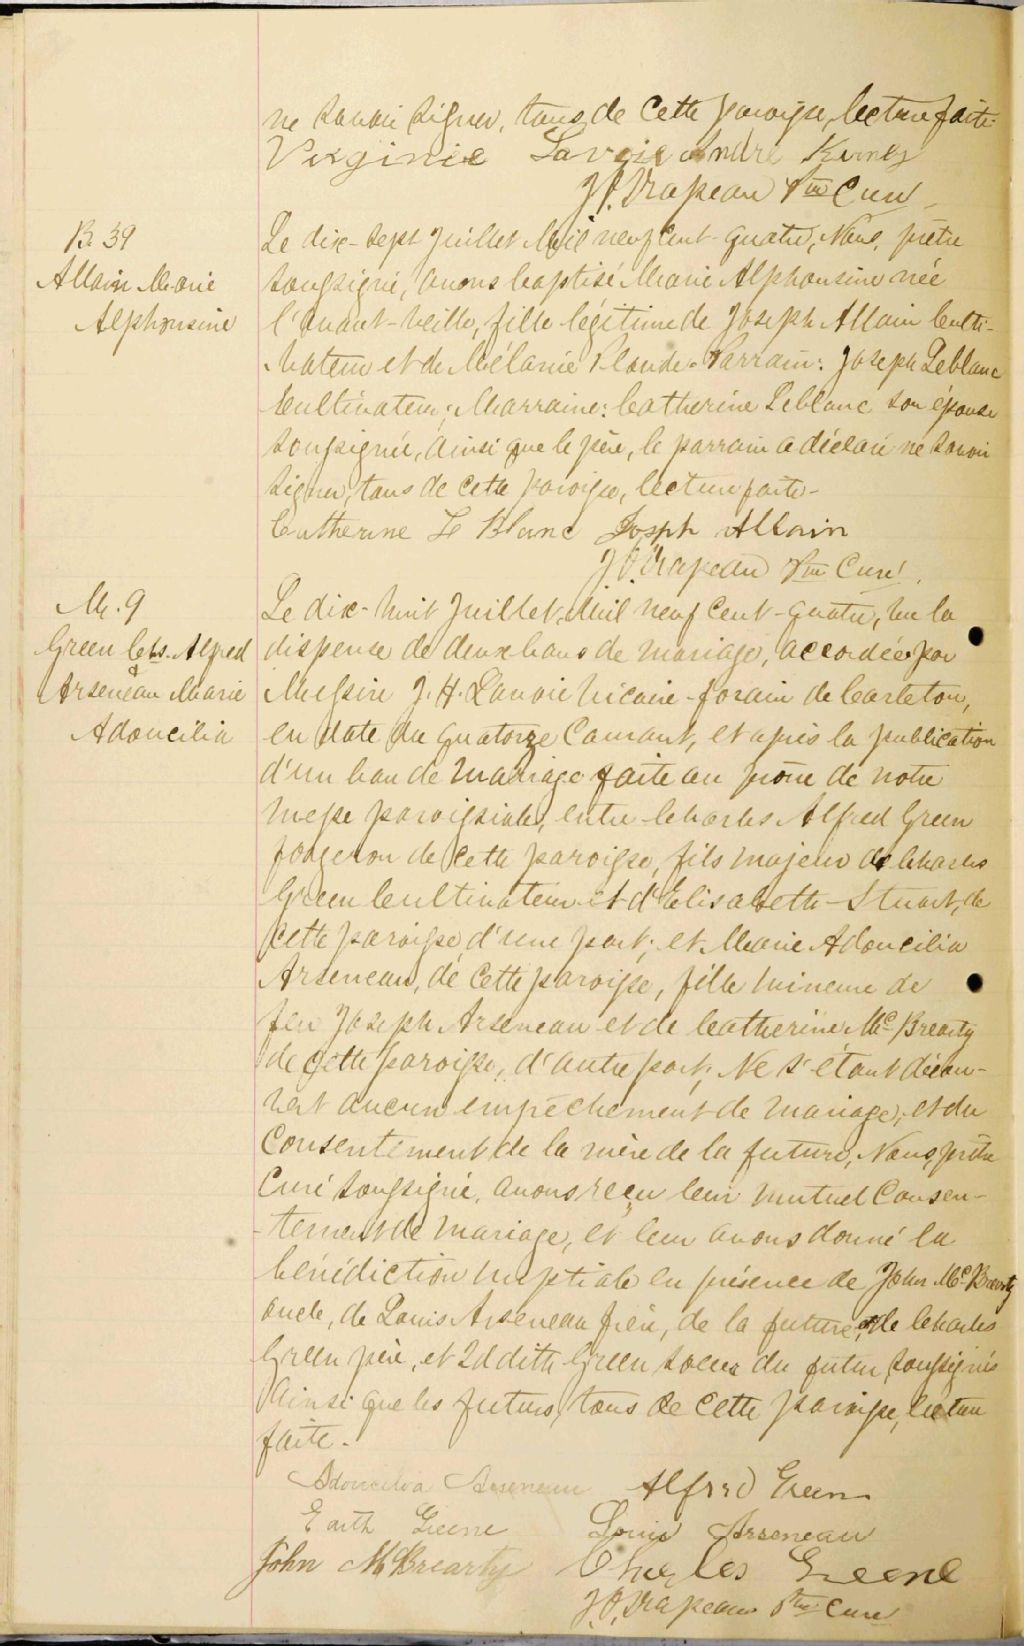 ne savoir signer, tous de cette paroisse, lecture faite.
Virginie Lavoie André Kerney
J. O. Drapeau Ptre Curé
B. 39
Allain Marie
Alphonsine
Le dix-sept Juillet Mil neuf cent-quatre, Nous, prêtre
soussigné, avons baptisé Marie Alphonsine née
l'avant-veille, fille légitime de Joseph Allain culti-
vateur et de Mélanie Plourde. Parrain: Joseph Leblanc
cultivateur; Marraine: Catherine Leblanc son épouse
soussignée, ainsi que le père, le parrain a déclaré ne savoir
signer, tous de cette paroisse, lecture faite-
Catherine Le Blanc Josph Allain
J. O. Drapeau Ptre Curé.
M. 9
Green Chs. Alfred
&
Arseneau Marie
Adoucilia
Le dix-huit Juillet, Mil neuf cent-quatre, Vu la
dispense de deux bans de mariage, accordée par
Messire J. H. Lavoie Vicaire-forain de Carleton,
en date du quatorze courant, et après la publication
d'un ban de mariage faite au prône de notre
messe paroissiale, entre Charles Alfred Green
forgeron de cette paroisse, fils majeur de Charles
Green cultivateur et d'Elisabeth Stuart, de
cette paroisse d'une part; et Marie Adoucilia
Arseneau, de cette paroisse, fille mineure de
feu Joseph Arseneau et de Catherine McBrearty
de cette paroisse, d'autre part; Ne s'étant décou-
vert aucun empêchement de mariage, et du
consentement de la mère de la future, Nous, prêtre
Curé soussigné, avons reçu leur mutuel consen-
-tement de mariage, et leur avons donné la
bénédiction nuptiale en présence de John McBrearty
oncle, de Louis Arseneau frère, de la future, et de Charles
Green père, et Edith Green soeur du futur, soussignés
ainsi que les futurs, tous de cette paroisse, lecture
faite.
Adoucilia Arseneau Alfred Green
Edith Greene Louis Arseneau
John McBrearty Charles Greene
J. O. Drapeau Ptre Curé